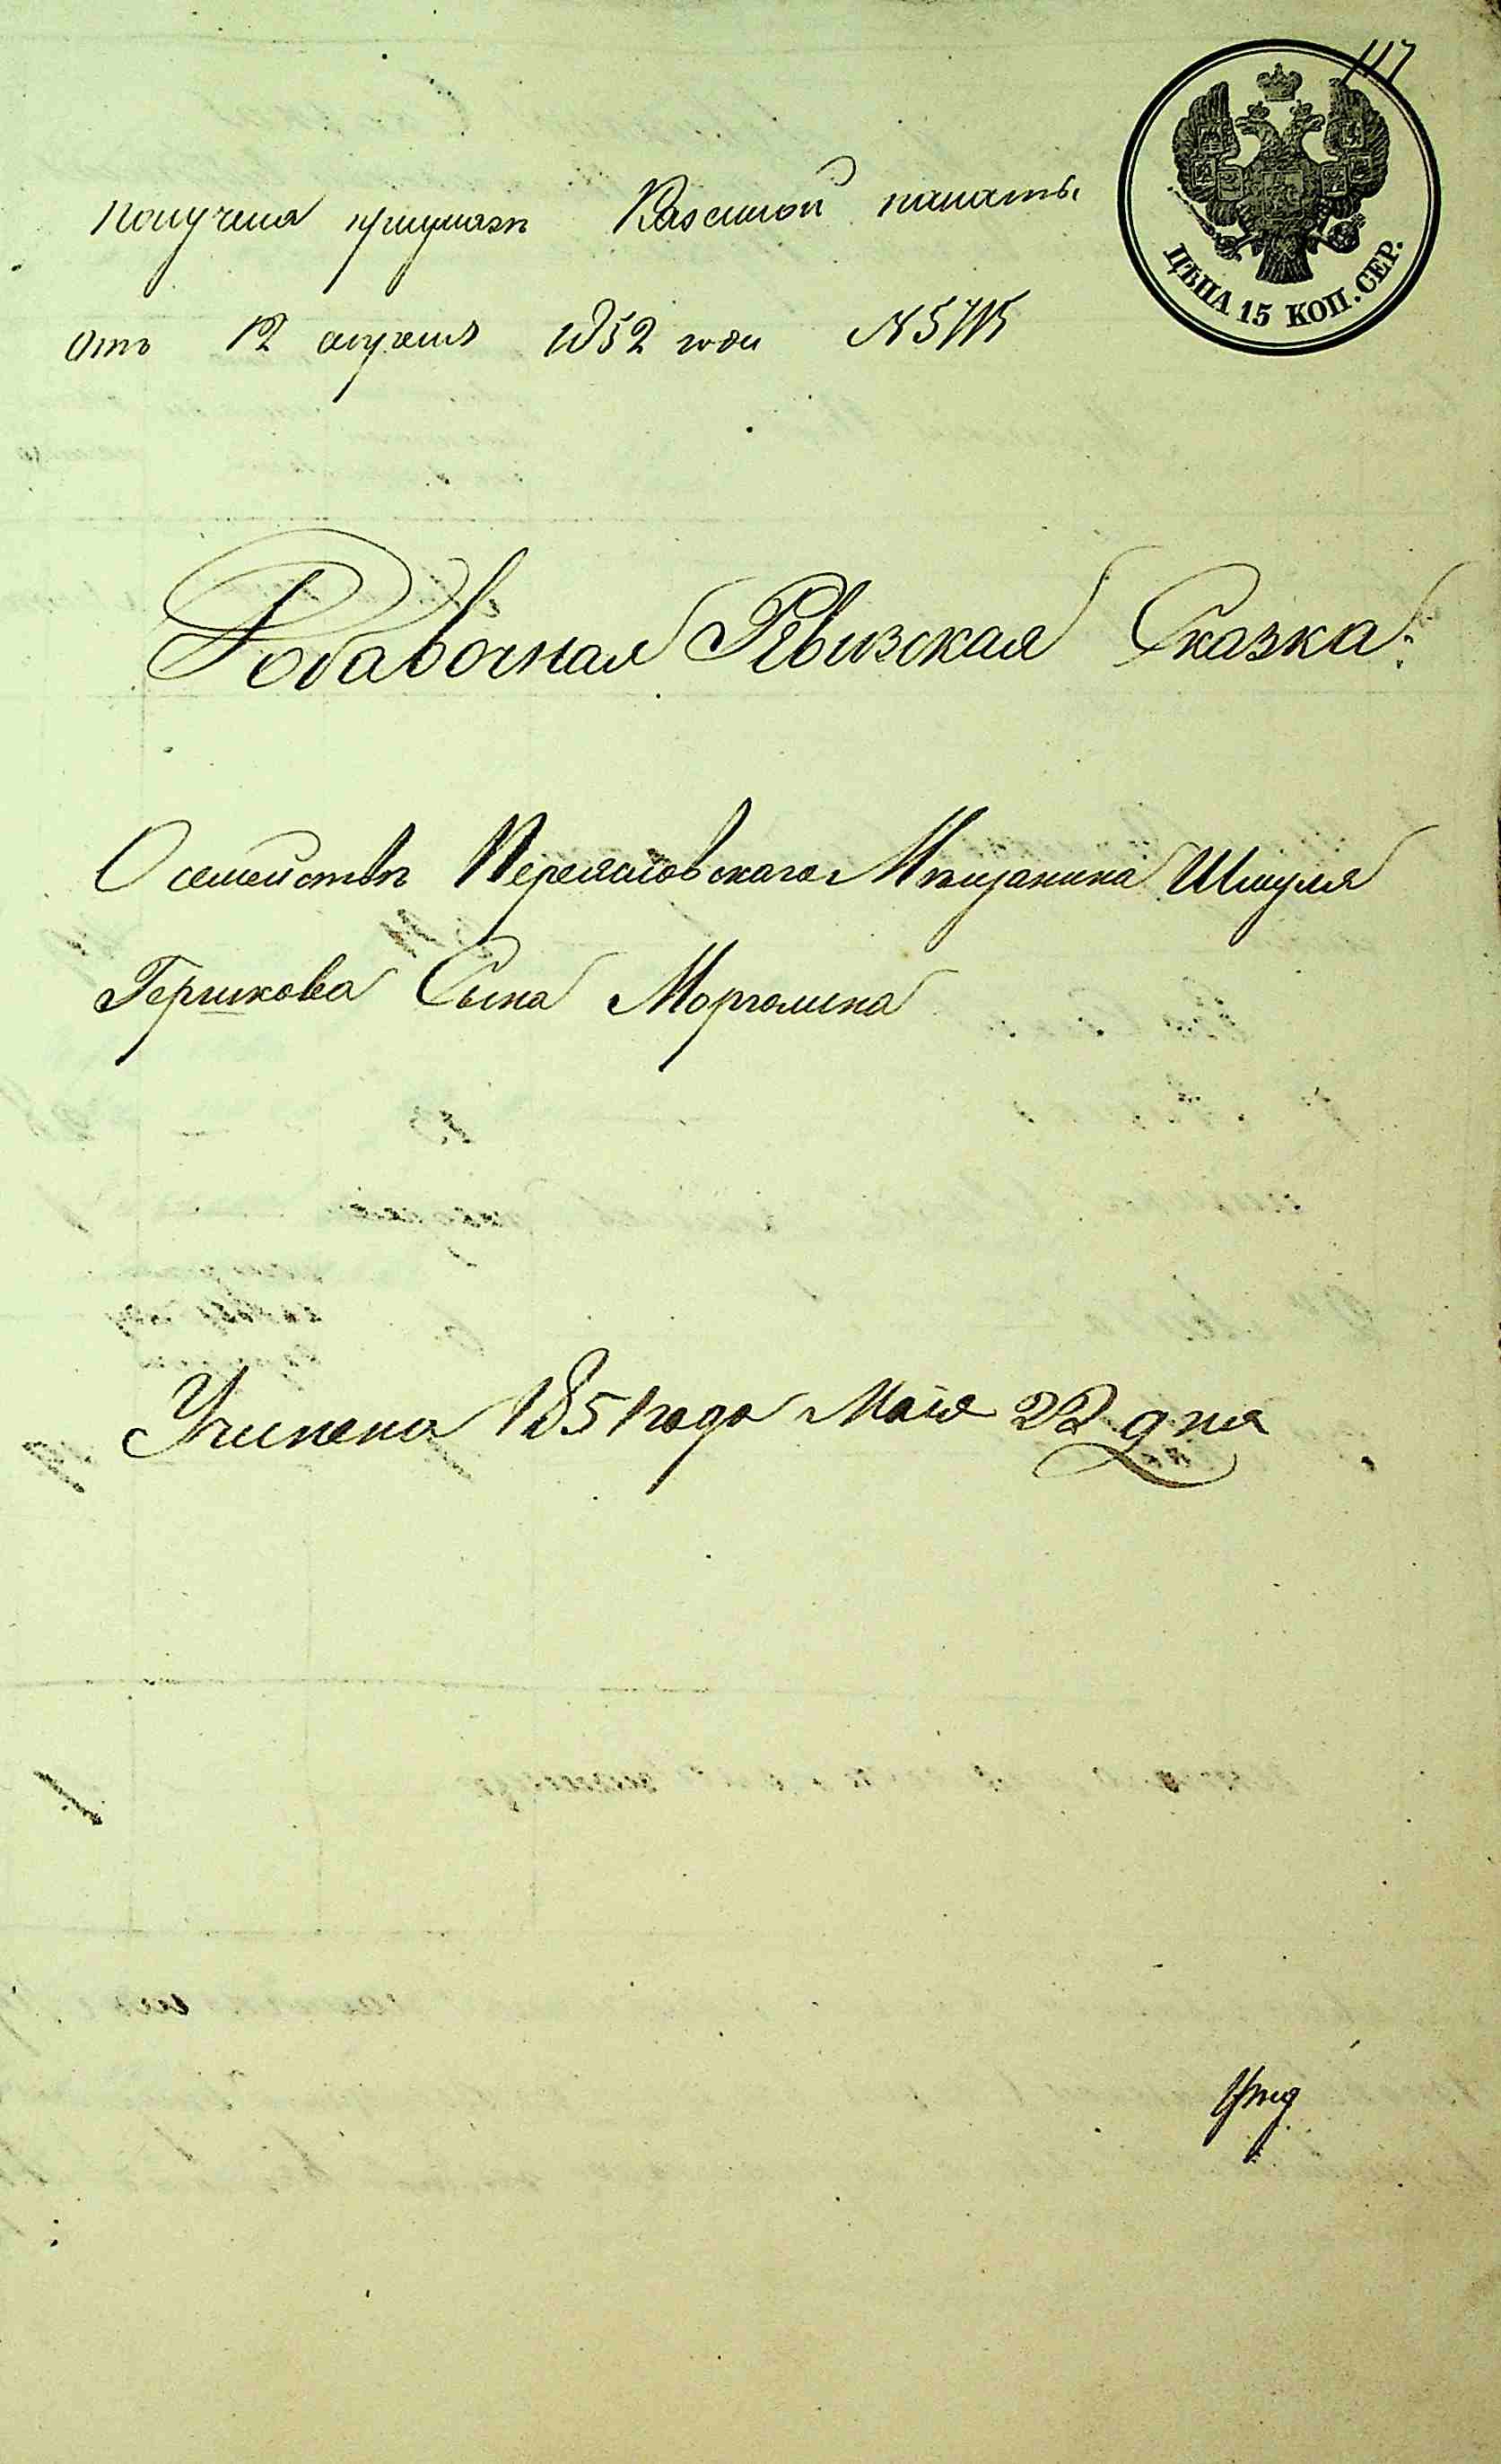 117
ЦѢНА 15 КОП. СЕР.
получена при указѣ Казенной палаты
отъ 12 апреля 1852 года №
Добавочная Ревизская Сказка
О семействѣ Переяславскаго Мѣщанина Шмуля
Гершкова Сына Морголина
Учинена 1851 года Маія 22 дня